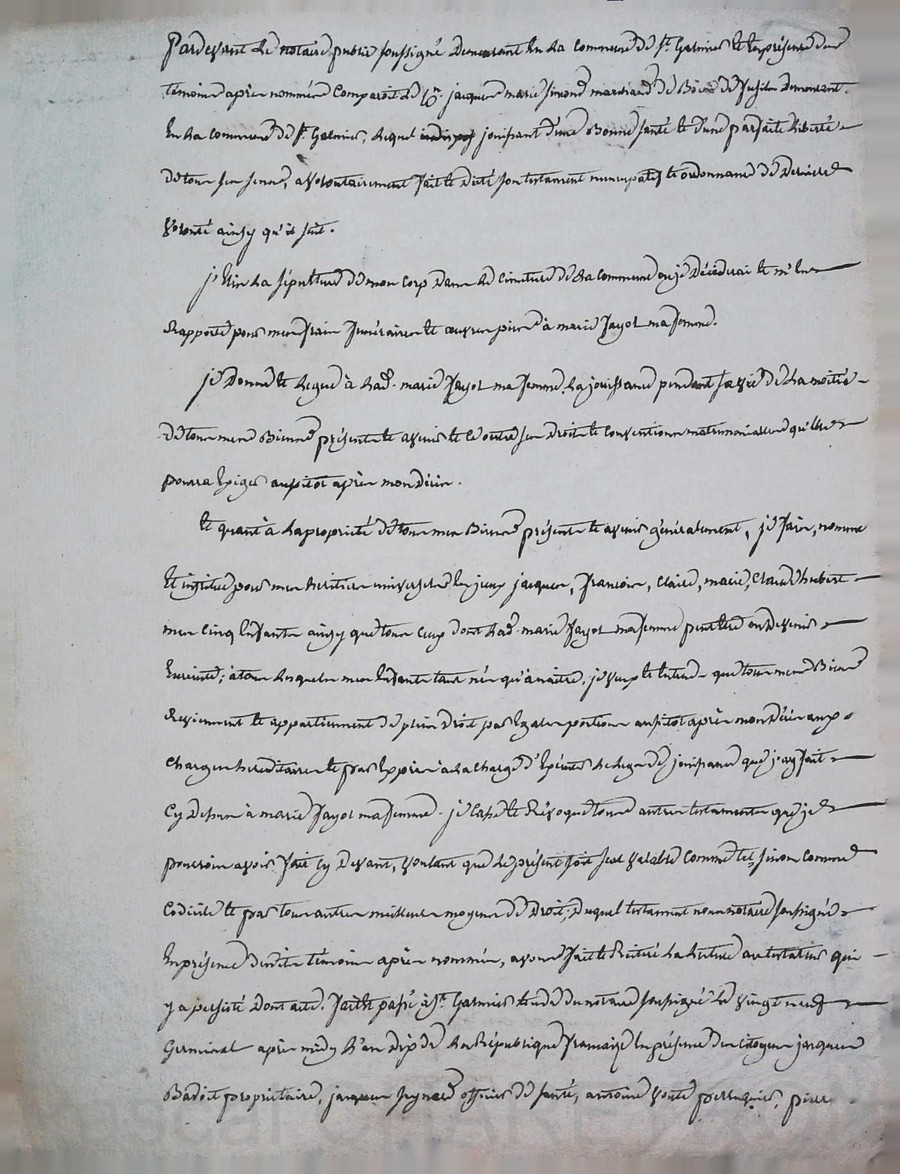 Pardevant le notaire public soussigné demeurant en la commune de St. Galmier et en présence des
témoins après nommés comparoit le Cn. jacques marie simond marchand de Bois de fusil demeurant
en la commune de St. Galmier, lequel jouissant d'une Bonne santé et d'une parfaite liberté
de tous ses sens, a volontairement fait et dicté son testament nuncupatif et ordonnance de dernière
volonté ainsy qu'il suit.
j'élis la sépulture de mon corps dans le cimetière de la commune ou je décéderai et m'en
rapporte pour mes frais funéraires et œuvres pies à marie Jayol ma femme.
je Donne et legue à lad. marie Jayol ma femme la jouissance pendant sa vie de la moitié
de tous mes Biens présents et avenir et ce outre ses droits et conventions matrimoniales qu'elle
pourra exiger aussitot après mon décès.
et quant à la propriété de tous mes Biens présents et avenir généralement, je fais, nomme
et institue pour mes heritiers universels en jceux jacques, francois, claire, marie, Claude hubert
mes cinq enfants ainsy que tous ceux dont lad. marie Jayol ma femme peut etre ou devenir
enceinte; à tous lesquels mes enfants tant nés qu'à naitre, je veux et entend que tous mes Biens
reviennent et appartiennent de plein droit par egales portions aussitot après mon décès aux
charges hereditaires et par exprès à la charge d' le legs de jouissance que j'ay fait
cy dessus à marie Jayol ma femme. je casse et révoque tous autres testaments que je
pourrois avoir fait cy devant, voulant que le présent soit seul valable comme tel, sinon comme
codicile et par tous autres meilleurs moyens de Droit; Duquel testament nous notaire soussigné
en présence desdits témoins après nommés, avons fait et réitéré la lecture au testateur qui
y a persisté dont acte. fait et passé à St. Galmier etude du notaire soussigné le vingt neuf
Germinal après midy l'an dix de la République francaise en présence des citoyens jacques
Badoit propriétaire, jacques officier de santé, antoine perruquier, pierre